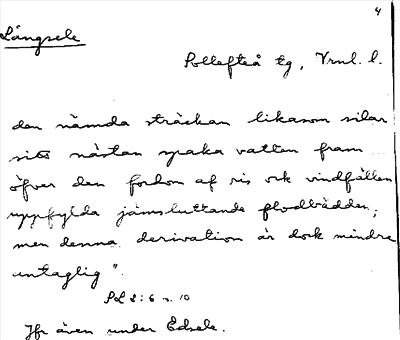 4
Långsele
Sollefteå tg, Vrnl. l.
den nämda sträckan likasom silar
sitt nästan spaka vatten fram
öfver den fordom af ris och vindfällen
uppfyllda jämsluttande flodbädden;
men denna derivation är dock mindre
antaglig".
2:6 s. 10
Jfr även under Edsele.